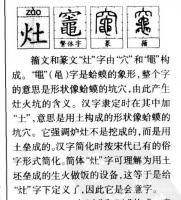 zào
灶 竈 竈 竈
繁体字 篆 籀
籀文和篆文“灶”字由“穴”和“黽”构
成。“黽”(黾)字是蛤蟆的象形,整个字
的意思是形状像蛤蟆的坑穴,由此产生
灶火坑的含义。汉字隶定时在其中加
“土”,意思是用土构成的形状像蛤蟆的
坑穴。它强调炉灶不是挖成的,而是用
土垒成的。汉字简化时按宋代已有的俗
字形式简化。简体“灶”字可理解为用土
坯垒成的生火做饭的设备,这等于是给
“灶”字下定义了,因此它是会意字。